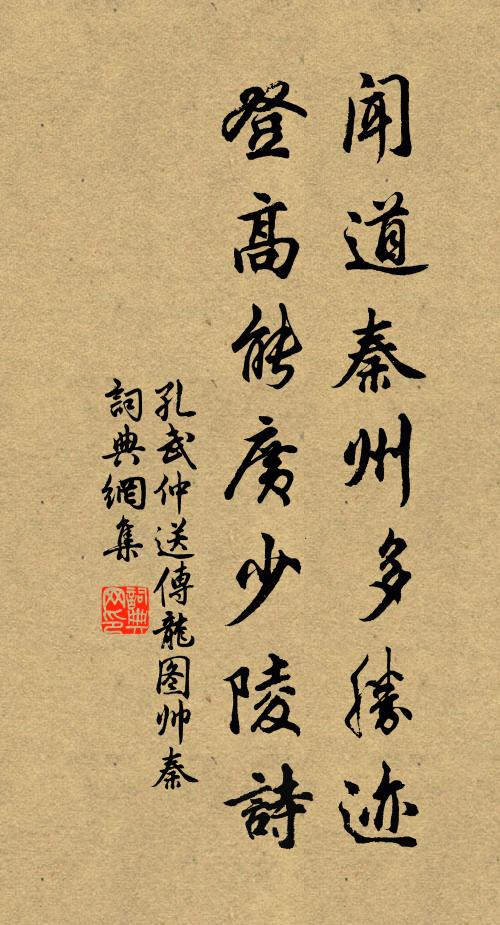 闻道秦州多勝迹
登高能廣少陵詩
孔武仲送傅龍图帅秦
詞典網集
詞典
网印